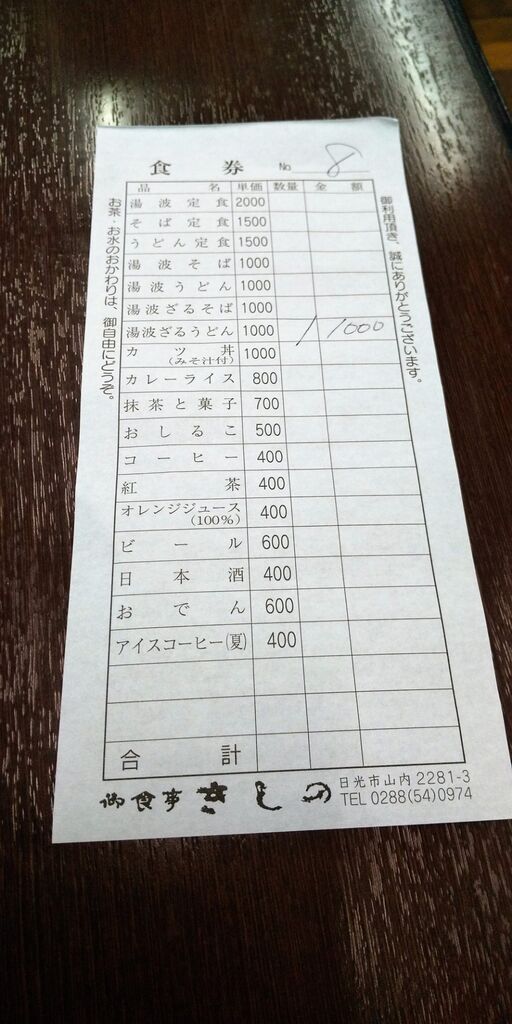 食券 No 8
品名 単価 数量 金額
湯波定食 2000
そば定食 1500
うどん定食 1500
湯波そば 1000
湯波うどん 1000
湯波ざるそば 1000
湯波ざるうどん 1000 1 1000
カツ丼 1000
(みそ汁付)
カレーライス 800
抹茶と菓子 700
おしるこ 500
コーヒー 400
紅茶 400
オレンジジュース 400
(100%)
ビール 600
日本酒 400
おでん 600
アイスコーヒー(夏) 400
合計
御利用頂き、誠にありがとうございます。
お茶・お水のおかわりは、御自由にどうぞ。
御食事 きしの
日光市山内 2281-3
TEL 0288(54)0974